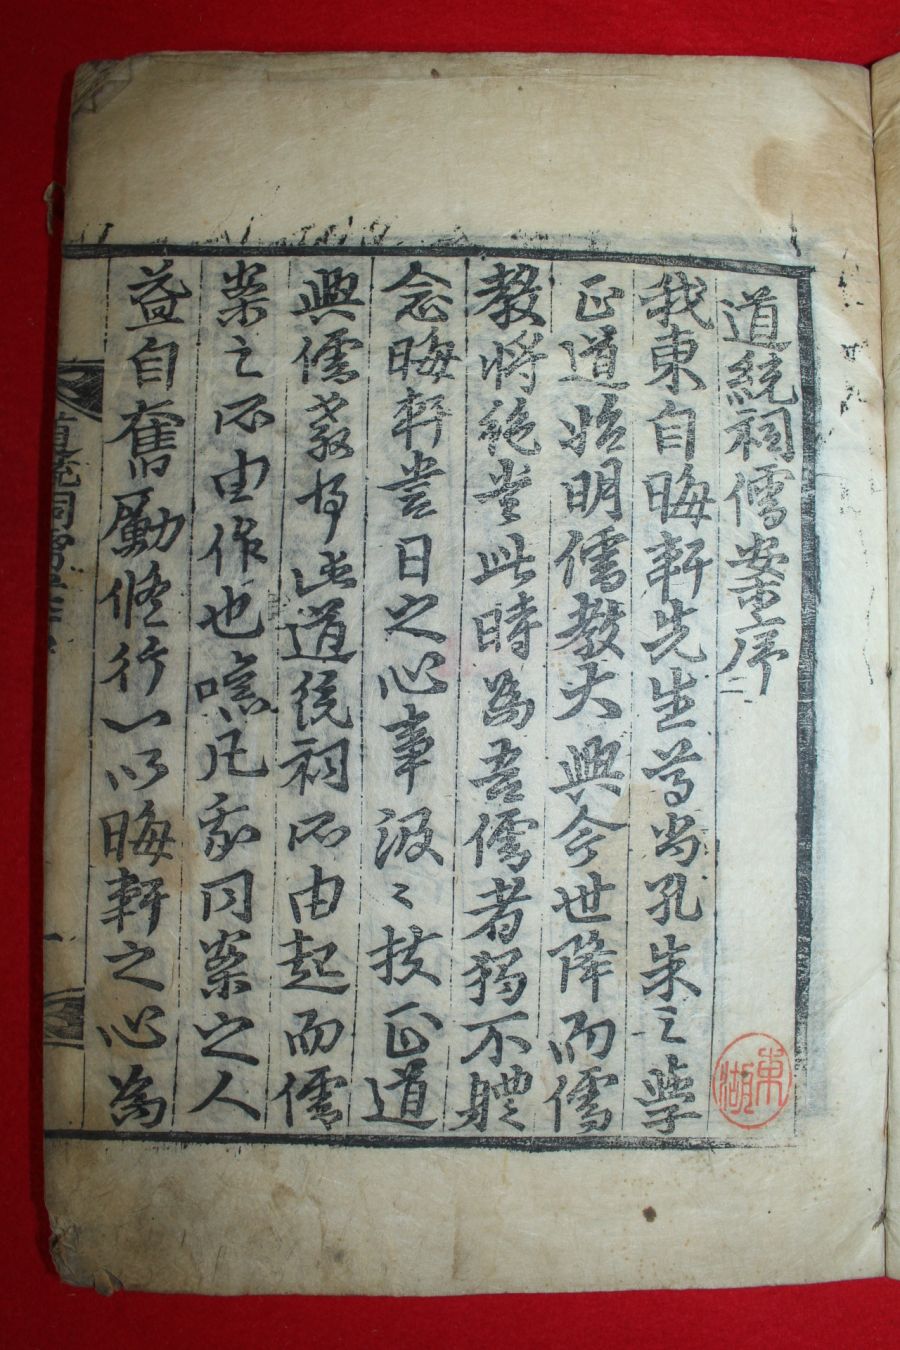 道統祠儒案序
我東自晦軒先生尊尚孔朱之學
正道始明儒教大興今世降而儒
教將絶當此時為吾儒者獨不軆
念晦軒當日之心事汲〻扶正道
興儒教乎此道統祠所由起而儒
案之所由作也噫凡我同案之人
益自奮勵修行一以晦軒之心為
東湖